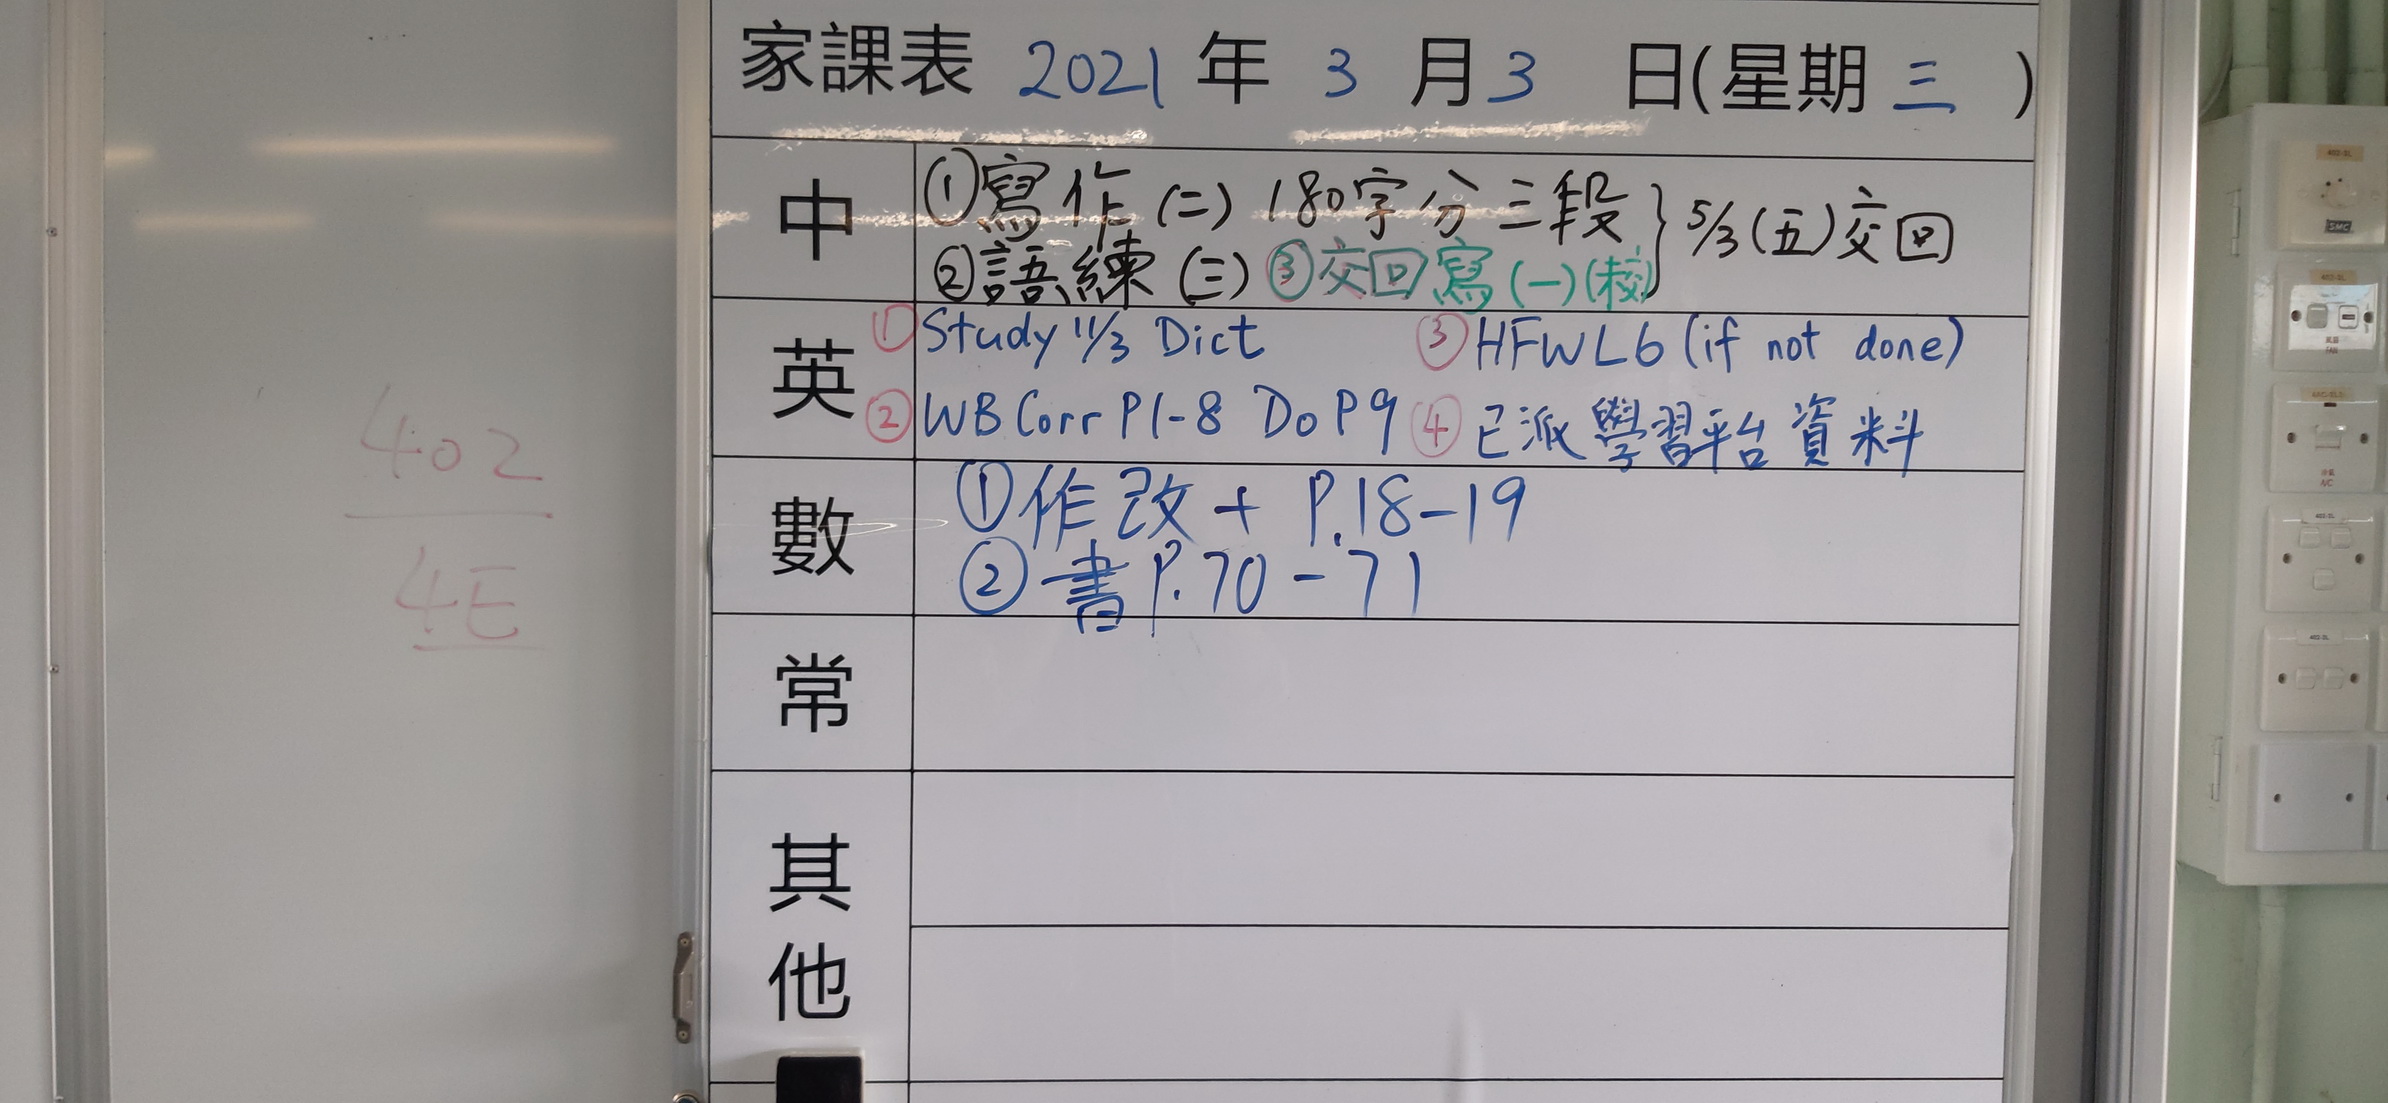 家課表 2021 年 3 月 3 日(星期 三 )
中
①寫作(二) 180字分三段
②語練(三) ③交回寫(一)(校)
} 5/3(五)交回
英
①Study 11/3 Dict ③HFWL6 (if not done)
②WB Corr P1-8 Do P9 ④已派學習平台資料
數
①作改 + P.18-19
②書P.70-71
常
其他
402
4E
SMC
FAN
A/C